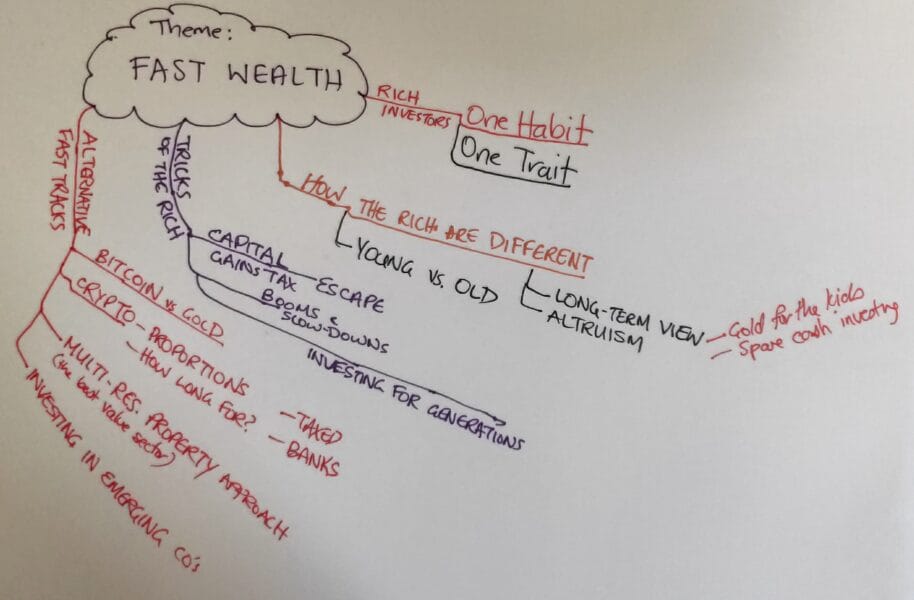 Theme:
FAST WEALTH
RICH
INVESTORS
One Habit
One Trait
HOW THE RICH ARE DIFFERENT
YOUNG VS. OLD
LONG-TERM VIEW
- Gold for the kids
- Spare cash investing
ALTRUISM
TRICKS
OF THE RICH
CAPITAL
GAINS TAX ESCAPE
BOOMS &
SLOW-DOWNS
INVESTING FOR GENERATIONS
ALTERNATIVE
FAST TRACKS
BITCOIN vs GOLD
CRYPTO - PROPORTIONS
- HOW LONG FOR?
- TAXED
- BANKS
MULTI-RES. PROPERTY APPROACH
(the best value sector)
INVESTING IN EMERGING CO's